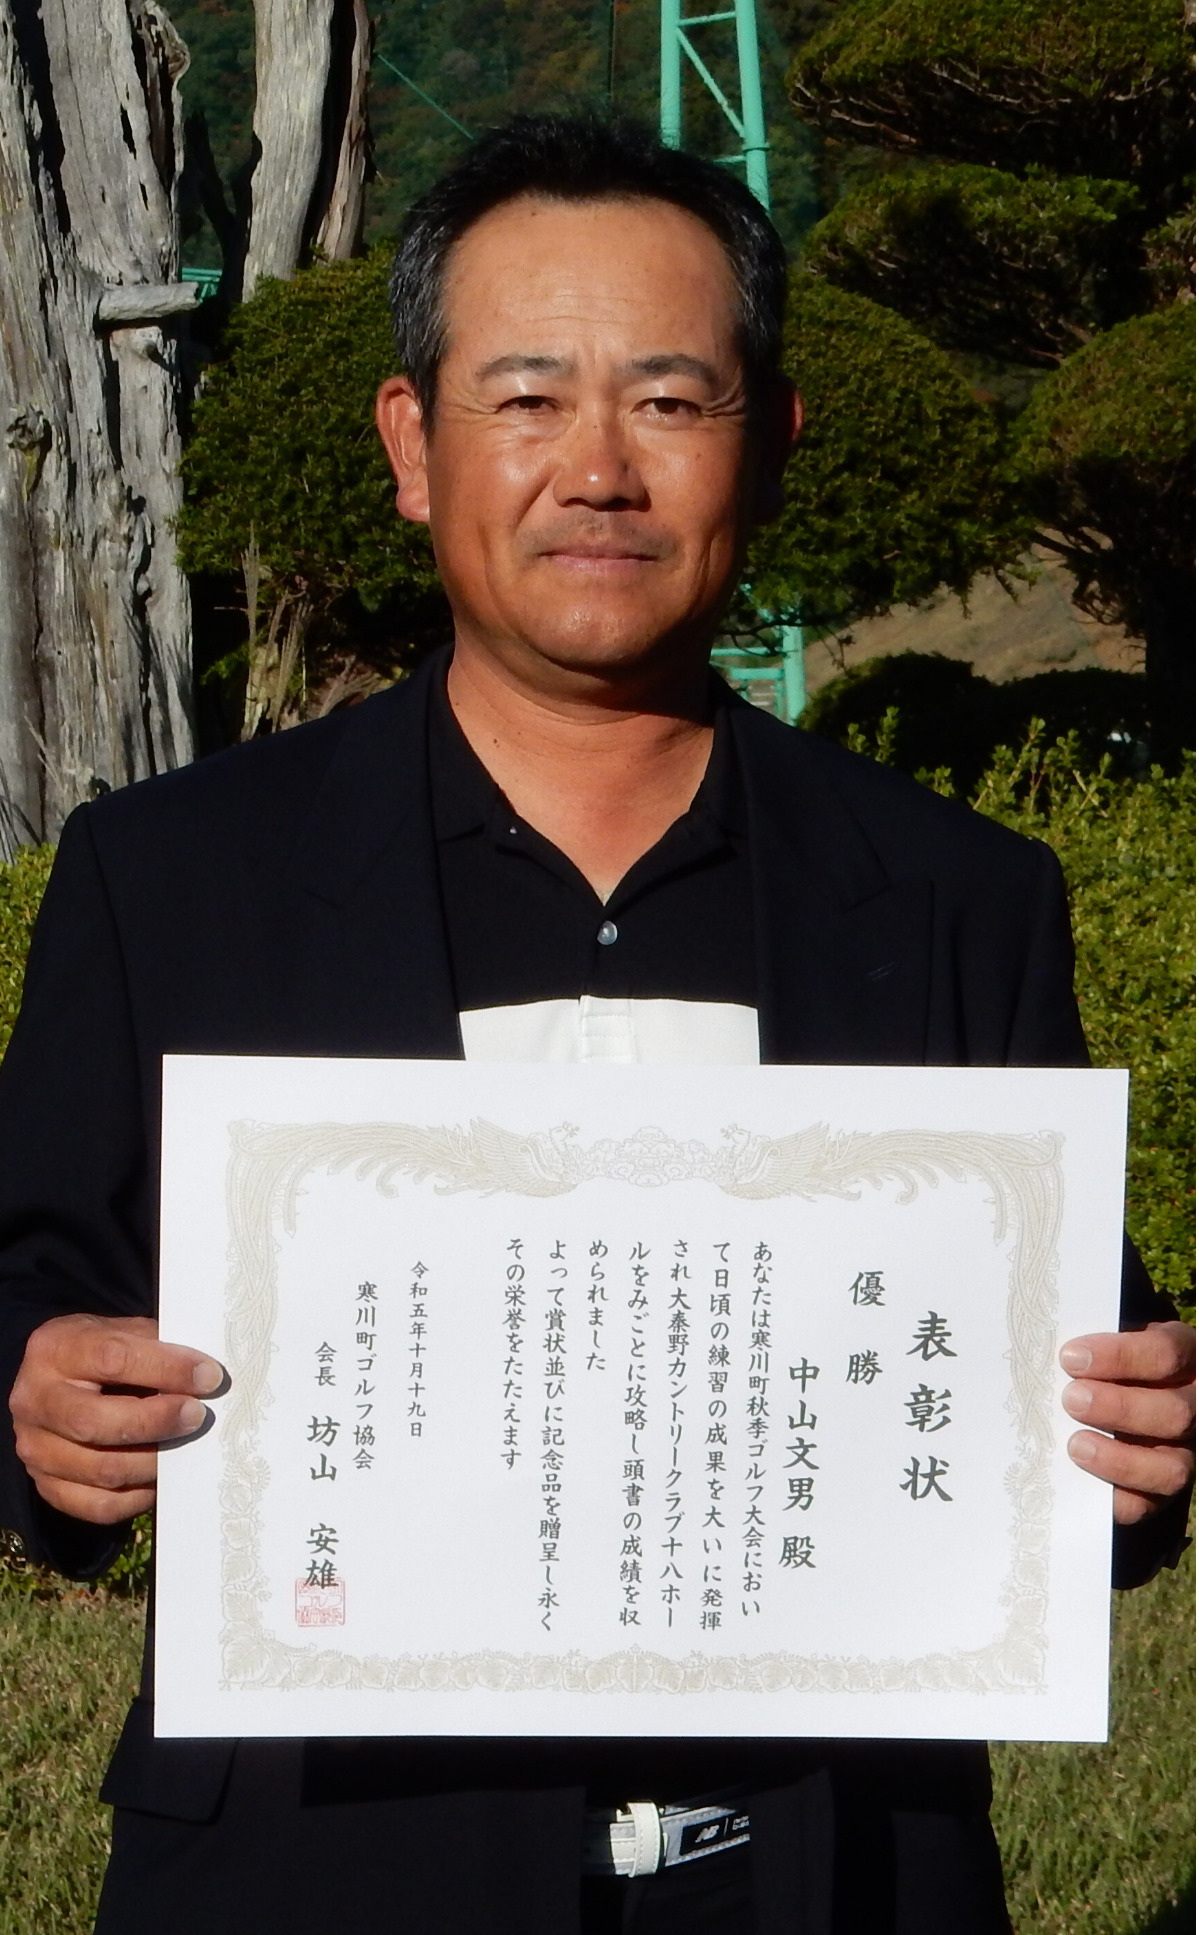 表彰状
優勝
中山文男 殿
あなたは寒川町秋季ゴルフ大会におい
て日頃の練習の成果を大いに発揮
され大秦野カントリークラブ十八ホー
ルをみごとに攻略し頭書の成績を収
められました
よって賞状並びに記念品を贈呈し永く
その栄誉をたたえます
令和五年十月十九日
寒川町ゴルフ協会
会長 坊山 安雄
NB